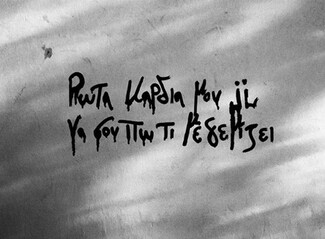 Ρωτα καρδια μου
να σου πω τι με γεμιζει